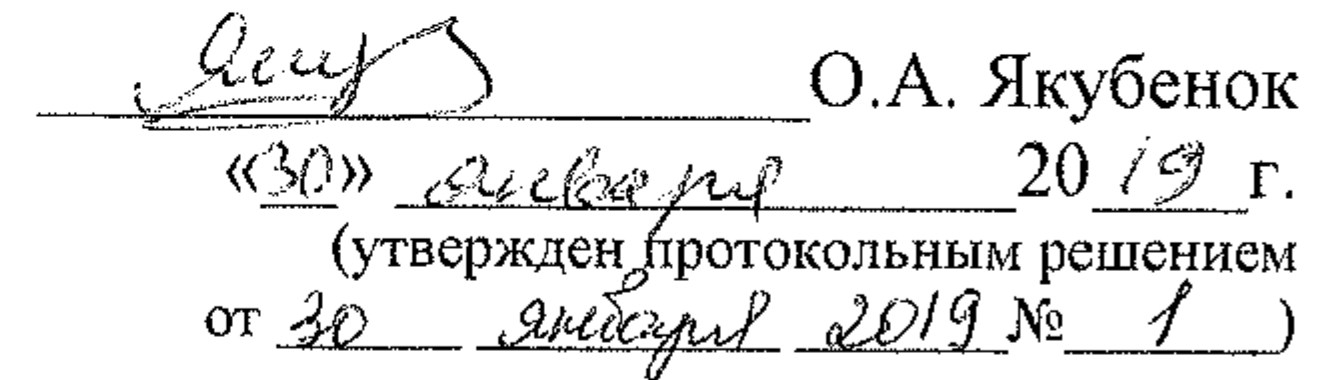 О.А. Якубенок
«30» января 2019 г.
(утвержден протокольным решением
от 30 января 2019 № 1 )